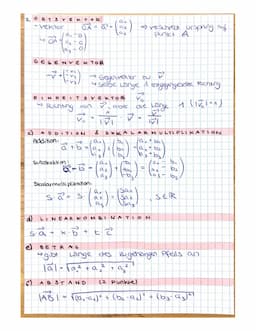 ORTSVEKTOR
→ Vektor OA = a = (a₁ a₂ a₃) → verbindet Ursprung mit Punkt A
OA = (a₁-0 a₂-0 a₃-0)
GEGENVEKTOR
-v = (-v₁ -v₂ -v₃) → Gegenvektor zu v
→ selbe Länge, entgegengesetzte Richtung
EINHEITSVEKTOR v₀
→ Richtung von v, aber die Länge 1 (|v₀|=1)
v₀ = 1/|v| · v = v/|v|
c) ADDITION & SKALARMULTIPLIKATION
Addition: a + b = (a₁ a₂ a₃) + (b₁ b₂ b₃) = (a₁+b₁ a₂+b₂ a₃+b₃)
Subtraktion:
Skalarmultiplikation:
s · a = s · (a₁ a₂ a₃) = (sa₁ sa₂ sa₃), s∈ℝ
d) LINEARKOMBINATION
e) BETRAG
→ gibt Länge des zugehörigen Pfeils an
|a| = √a₁² + a₂² + a₃²
f) ABSTAND (2 Punkte)
|AB| = √(b₁-a₁)² + (b₂-a₂)² + (b₃-a₃)²